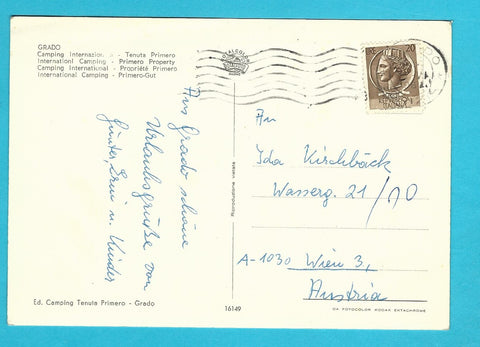 GRADO
Camping Internazionale - Tenuta Primero
Internationl Camping - Primero Property
Camping International - Propriété Primero
International Camping - Primero-Gut
Aus Grado schöne
Urlaubsgrüße von
Günter, Erni u. Kinder
Ed. Camping Tenuta Primero - Grado
16149
20
An
Ida Kirschbäck
Wasserg. 21/10
A-1030 Wien 3,
Austria
DA FOTOCOLOR KODAK EKTACHROME